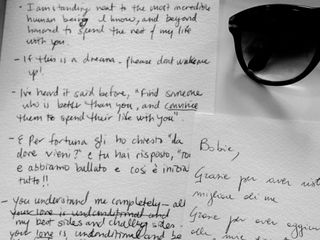 - I am standing next to the most incredible
human being I know, and beyond
honored to spend the rest of my life
with you.
- If this is a dream - please dont wake me
up!
- Ive heard it said before, "Find someone
who is better than you, and convince
them to spend their life with you".
- E Per fortuna gli ho chiesto "da
dove vieni?" e tu hai risposto,
e abbiamo ballato e così è inizia
tutto!!
- you understand me completely - all
your love is unconditional and
my best sides and challeng sides -
your love is unconditional and
Bobie,
Grazie per aver
migliore di me
Grazie per aver